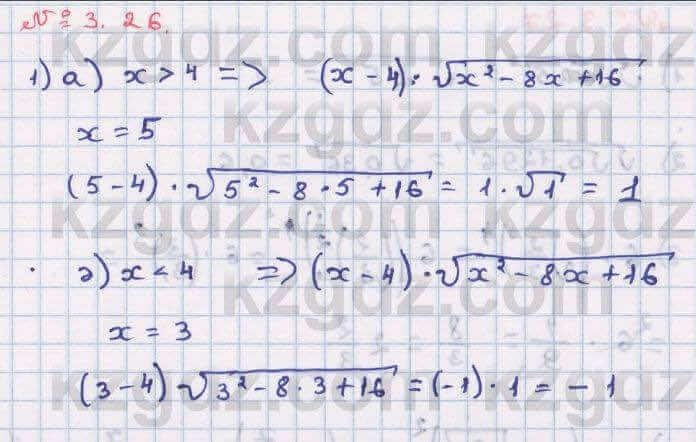 № 3. 26.
1) а) x > 4 => (x - 4) · √(x² - 8x + 16)
x = 5
(5 - 4) · √(5² - 8 · 5 + 16) = 1 · √1 = 1
ә) x < 4 => (x - 4) · √(x² - 8x + 16)
x = 3
(3 - 4) √(3² - 8 · 3 + 16) = (-1) · 1 = - 1
kzgdz.com
kzgdz.com
kzgdz.com
kzgdz.com
kzgdz.com